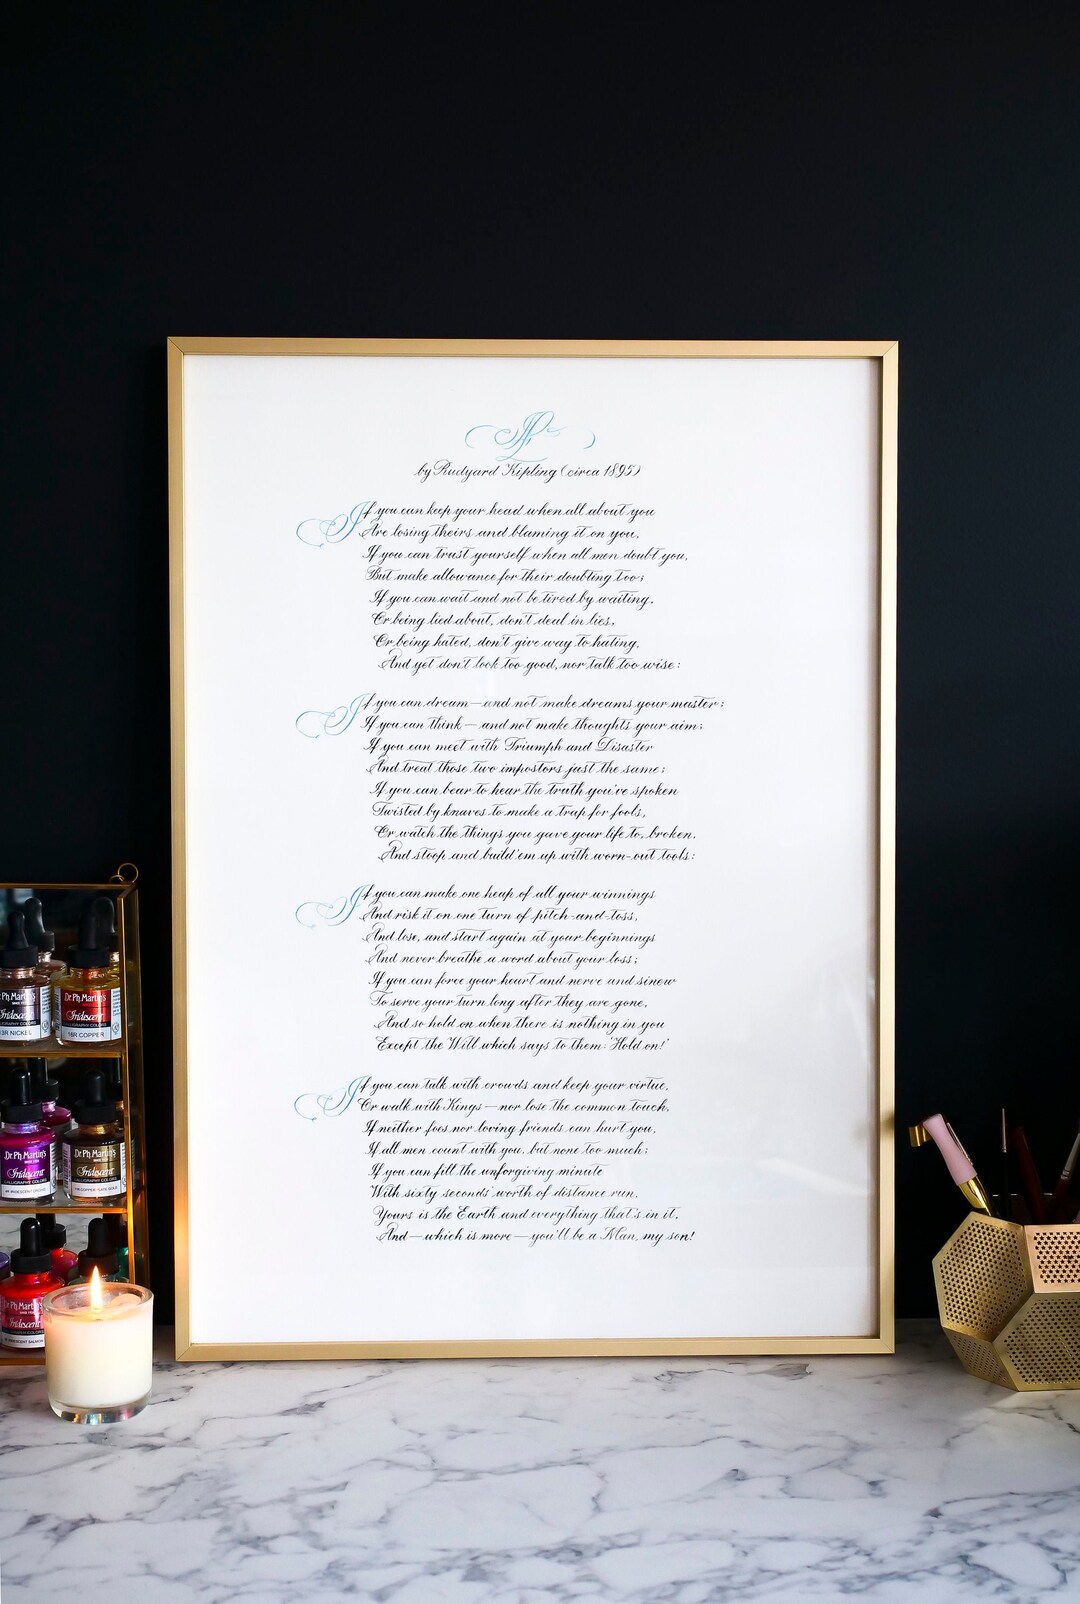 If
by Rudyard Kipling (circa 1895)
If you can keep your head when all about you
Are losing theirs and blaming it on you,
If you can trust yourself when all men doubt you,
But make allowance for their doubting too;
If you can wait and not be tired by waiting,
Or being lied about, don't deal in lies,
Or being hated, don't give way to hating,
And yet don't look too good, nor talk too wise:
If you can dream—and not make dreams your master;
If you can think—and not make thoughts your aim;
If you can meet with Triumph and Disaster
And treat those two impostors just the same;
If you can bear to hear the truth you've spoken
Twisted by knaves to make a trap for fools,
Or watch the things you gave your life to, broken,
And stoop and build 'em up with worn-out tools:
If you can make one heap of all your winnings
And risk it on one turn of pitch-and-toss,
And lose, and start again at your beginnings
And never breathe a word about your loss;
If you can force your heart and nerve and sinew
To serve your turn long after they are gone,
And so hold on when there is nothing in you
Except the Will which says to them: 'Hold on!'
If you can talk with crowds and keep your virtue,
Or walk with Kings—nor lose the common touch,
If neither foes nor loving friends can hurt you,
If all men count with you, but none too much;
If you can fill the unforgiving minute
With sixty seconds' worth of distance run,
Yours is the Earth and everything that's in it,
And—which is more—you'll be a Man, my son!
Dr. Ph. Martin's
Iridescent
CALLIGRAPHY COLORS
13R NICKEL
Dr. Ph. Martin's
Iridescent
CALLIGRAPHY COLORS
16R COPPER
Dr. Ph. Martin's
Iridescent
Dr. Ph. Martin's
Iridescent
Dr. Ph. Martin's
Iridescent